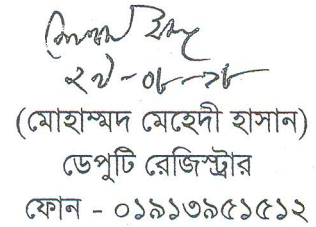 (মোহাম্মদ মেহেদী হাসান)
ডেপুটি রেজিস্ট্রার
ফোন - ০১৯১৩৯৫১৫১২